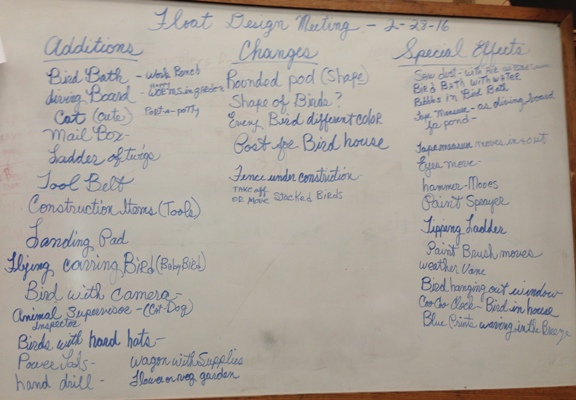 Float Design Meeting - 2-28-16
Additions
Bird Bath - Work Bench
diving Board - worms in garden
Cat (cute) Port-a-potty
Mail Box -
Ladder of twigs
Tool Belt
Construction Items (Tools)
Landing Pad
Flying carring Bird (Baby Bird)
Bird with camera -
Animal Supervisor - (Cat-Dog)
Inspector
Birds with hard hats -
Power
hand drill - wagon with Supplies
Flower or veg garden
Changes
Rounded pod (Shape)
Shape of Birds?
Every Bird different color
Post for Bird house
Fence under constrution -
TAKE OFF
OR MOVE Stacked Birds
Special Effects
Saw dust - with
BIRD BATH WITH WATER
Bubbles in Bird Bath
Tape Measure - as diving board
for pond -
Tape measure moves in + out
Eyes move -
hammer - Moves
Paint Sprayer
Tipping Ladder
Paint Brush moves
weather Vane
Bird hanging out window
Coo Coo Clock - Bird in house
Blue Prints waving in the Breeze